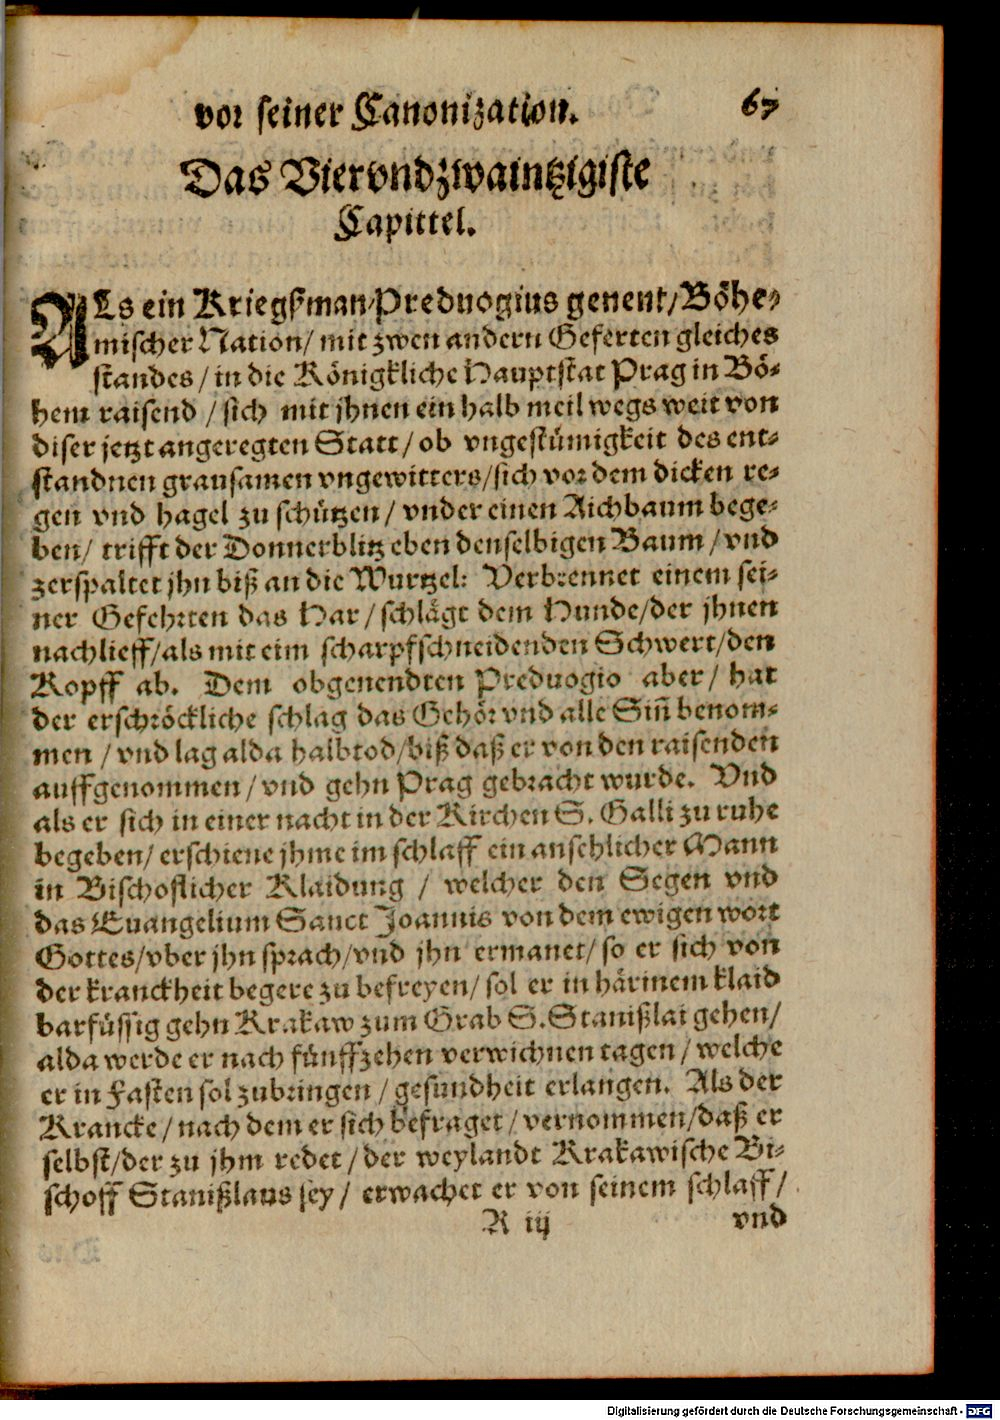 vor seiner Canonization. 67
Das Viervndzwaintzigiste
Capittel.
ALs ein Kriegßman Preduogius genent/Böhe-
mischer Nation/ mit zwen andern Geferten gleiches
standes / in die Königkliche Hauptstat Prag in Bö-
hem raisend / sich mit jhnen ein halb meil wegs weit von
diser jetzt angeregten Statt/ ob vngestümigkeit des ent-
standnen grausamen vngewitters/sich vor dem dicken re-
gen vnd hagel zu schützen/ vnder einen Aichbaum bege-
ben/ trifft der Donnerblitz eben denselbigen Baum/vnd
zerspaltet jhn biß an die Wurtzel: Verbrennet einem sei-
ner Gefehrten das Har/schlägt dem Hunde/der jhnen
nachlieff/als mit eim scharpfschneidenden Schwert/den
Kopff ab. Dem obgenendten Preduogio aber/ hat
der erschröckliche schlag das Gehör vnd alle Siñ benom-
men / vnd lag alda halbtod/biß daß er von den raisenden
auffgenommen / vnd gehn Prag gebracht wurde. Vnd
als er sich in einer nacht in der Kirchen S. Galli zu ruhe
begeben/ erschiene jhme im schlaff ein ansehlicher Mann
in Bischoflicher Klaidung / welcher den Segen vnd
das Euangelium Sanct Joannis von dem ewigen wort
Gottes/vber jhn sprach/vnd jhn ermanet/ so er sich von
der kranckheit begere zu befreyen/ sol er in härinem klaid
barfüssig gehn Krakaw zum Grab S. Stanißlai gehen/
alda werde er nach fünffzehen verwichnen tagen / welche
er in Fasten sol zubringen / gesundheit erlangen. Als der
Krancke / nach dem er sich befraget / vernommen/daß er
selbst/der zu jhm redet / der weylandt Krakawische Bi-
schoff Stanißlaus sey / erwachet er von seinem schlaff/
R iij vnd
Digitalisierung gefördert durch die Deutsche Forschungsgemeinschaft - DFG